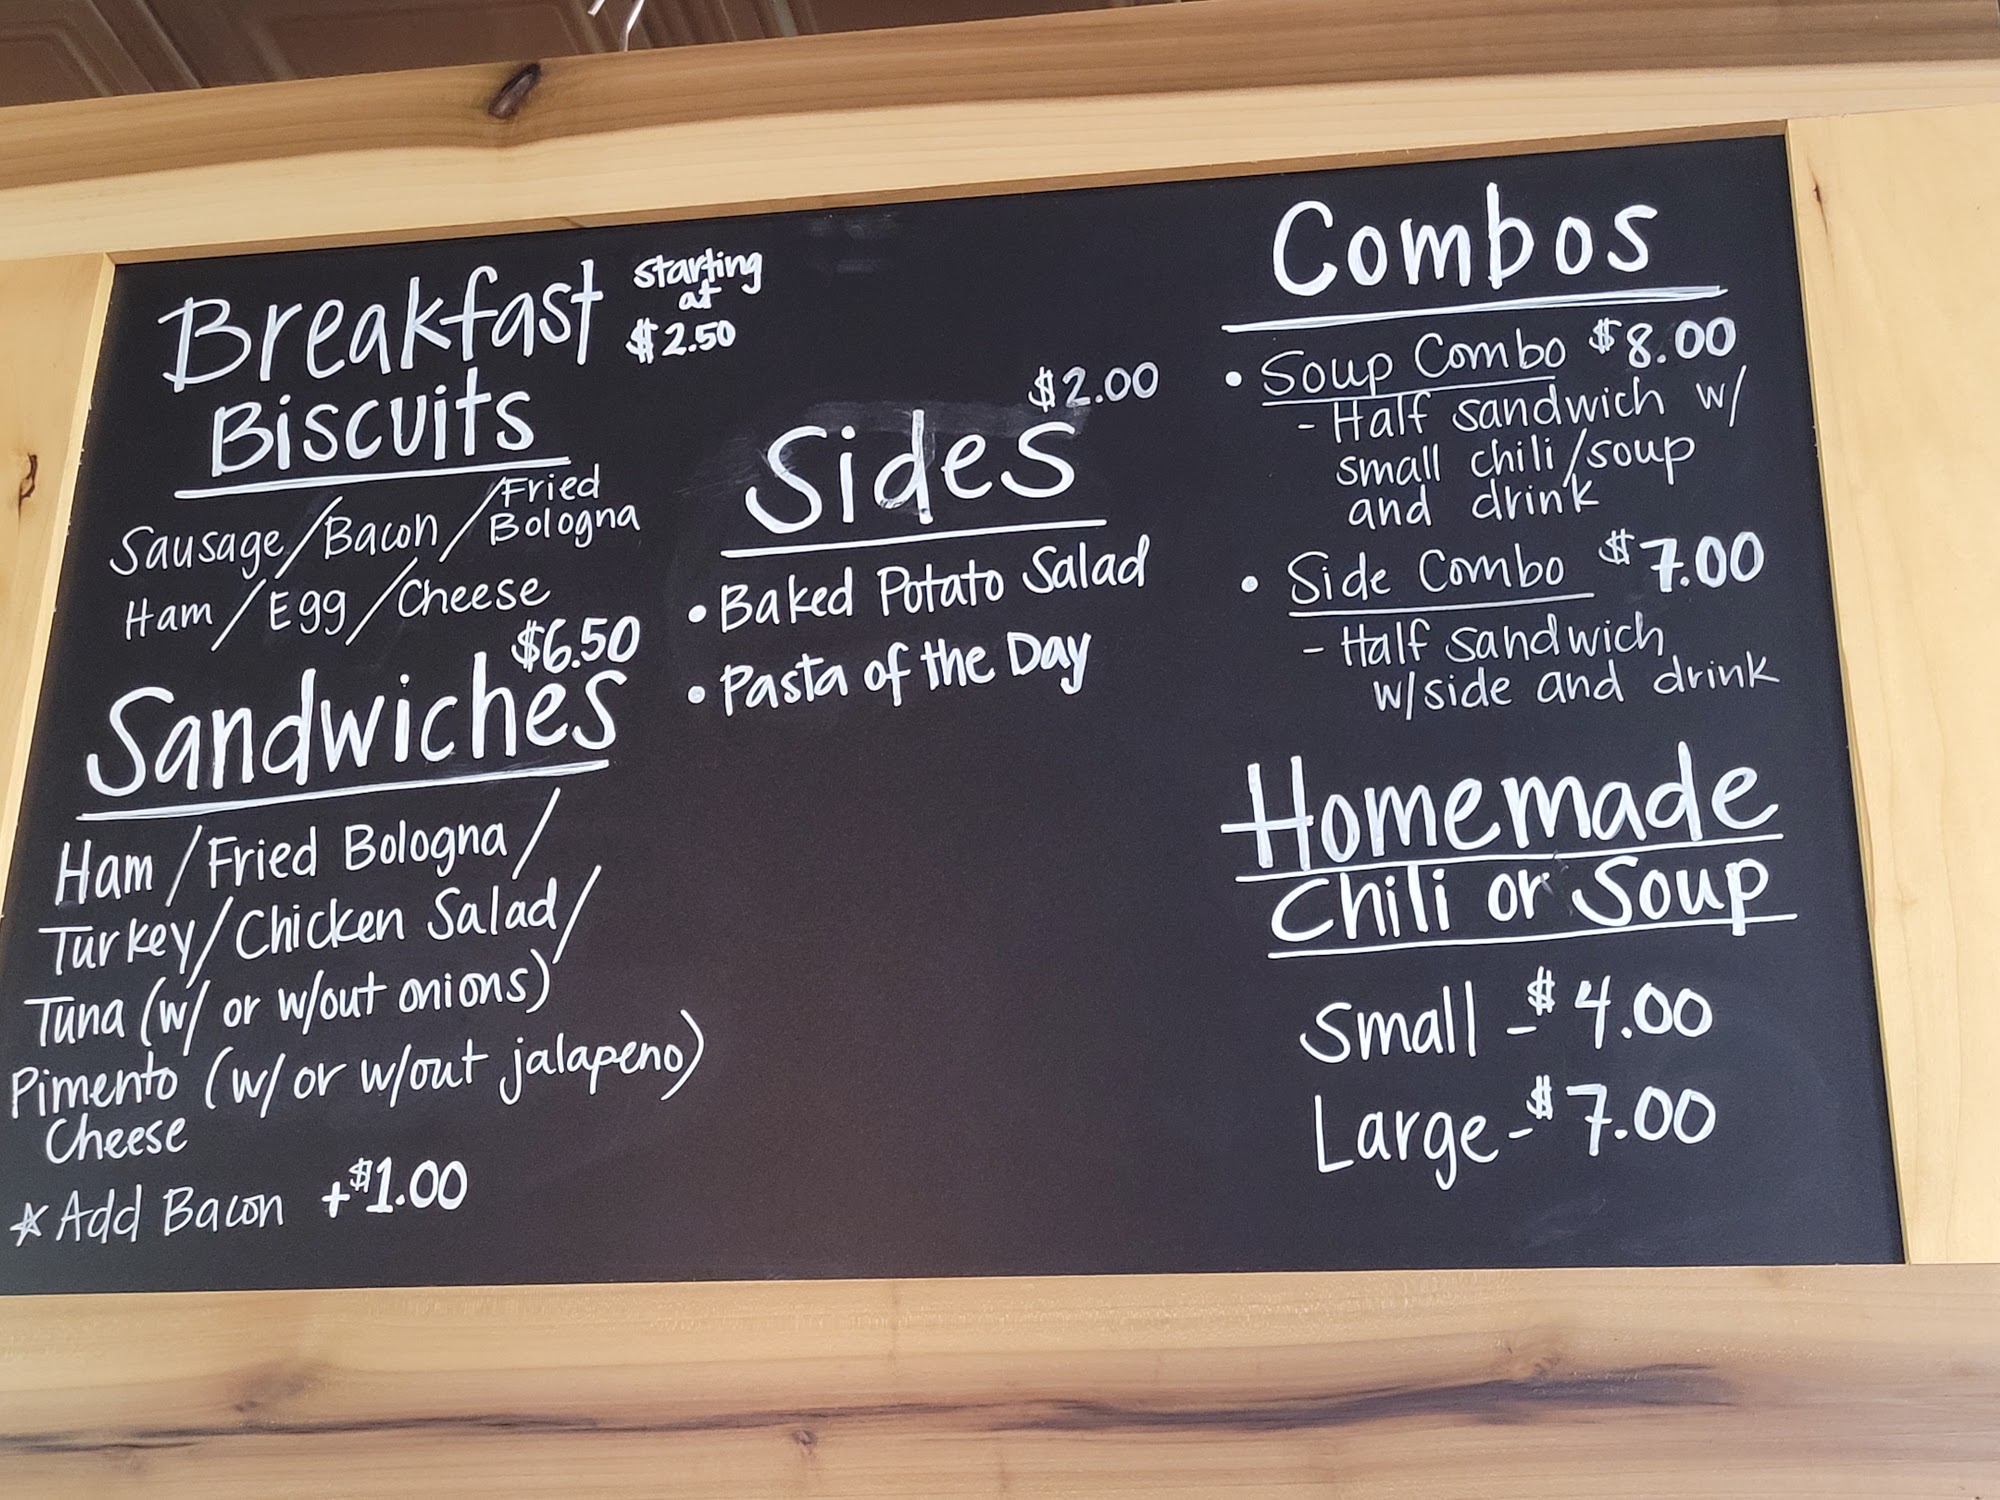 Breakfast starting at $2.50
Biscuits
Sausage/Bacon/Fried Bologna
Ham/Egg/Cheese
Sandwiches $6.50
Ham/Fried Bologna/
Turkey/Chicken Salad/
Tuna (w/ or w/out onions)
Pimento (w/ or w/out jalapeno)
Cheese
☆ Add Bacon +$1.00
$2.00
Sides
• Baked Potato Salad
• Pasta of the Day
Combos
• Soup Combo $8.00
- Half sandwich w/
small chili/soup
and drink
• Side Combo $7.00
- Half sandwich
w/side and drink
Homemade
Chili or Soup
Small - $4.00
Large - $7.00